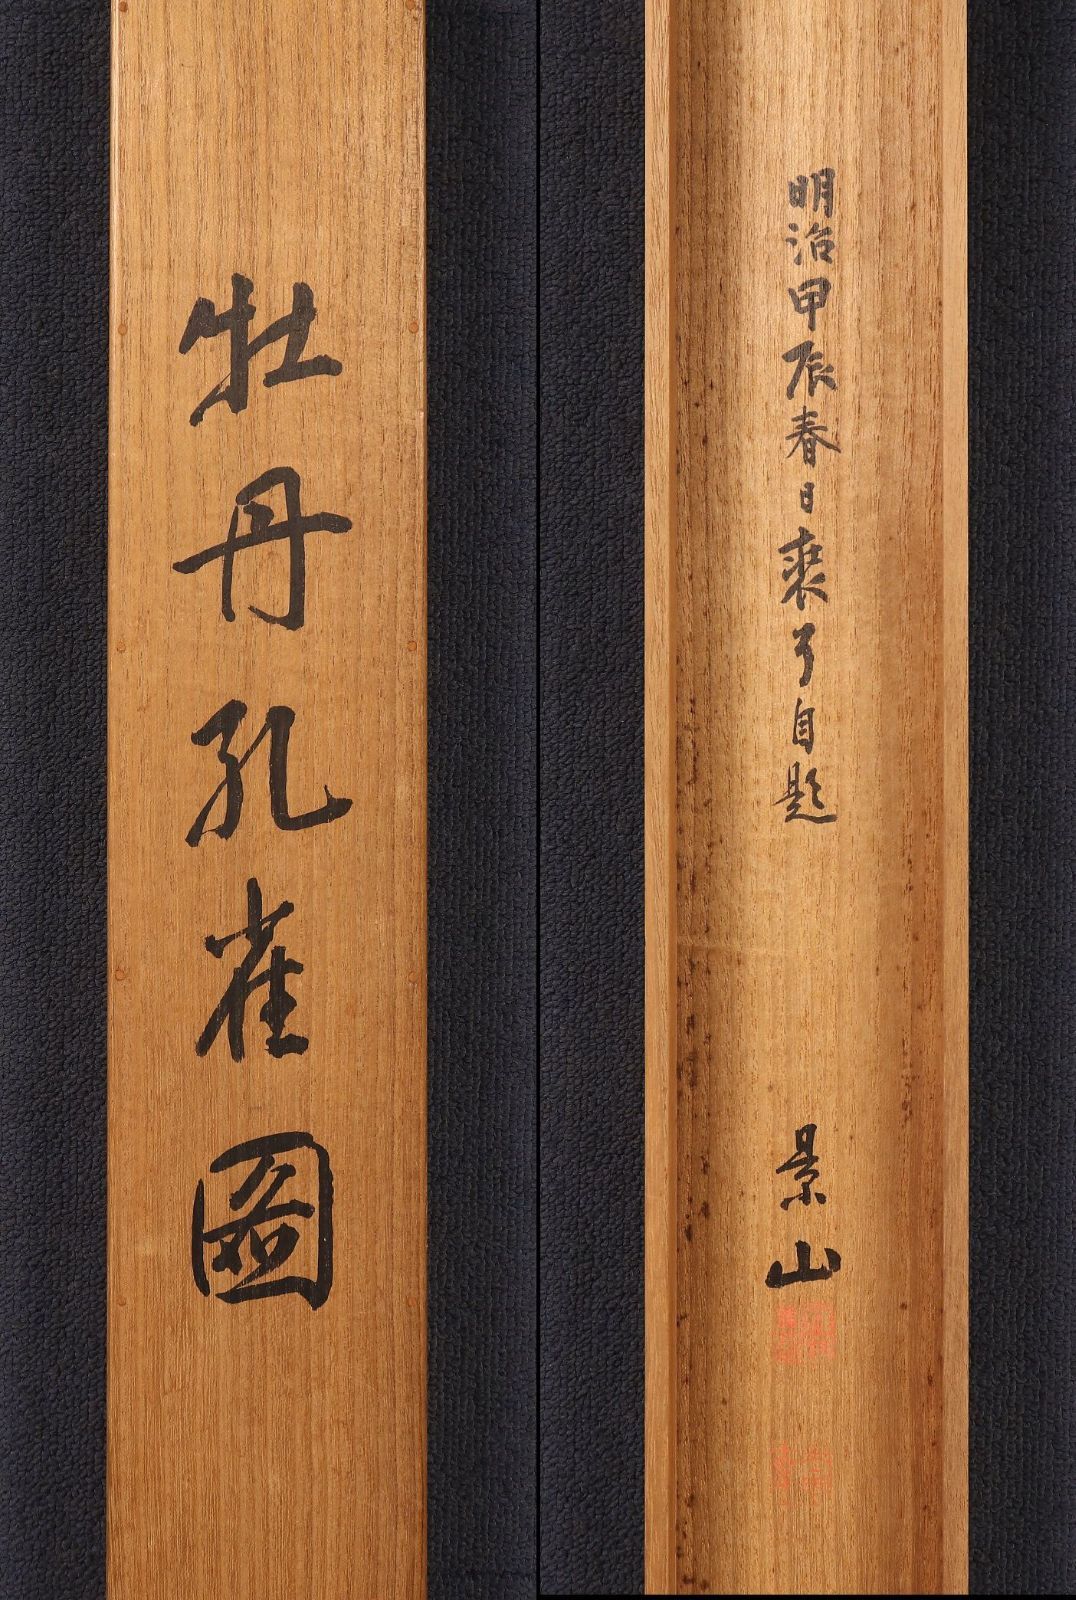 牡丹孔雀圖
明治甲辰春日装弓自題
景山